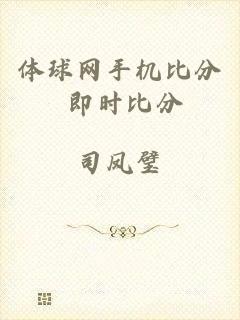 体球网手机比分
即时比分
司凤璧